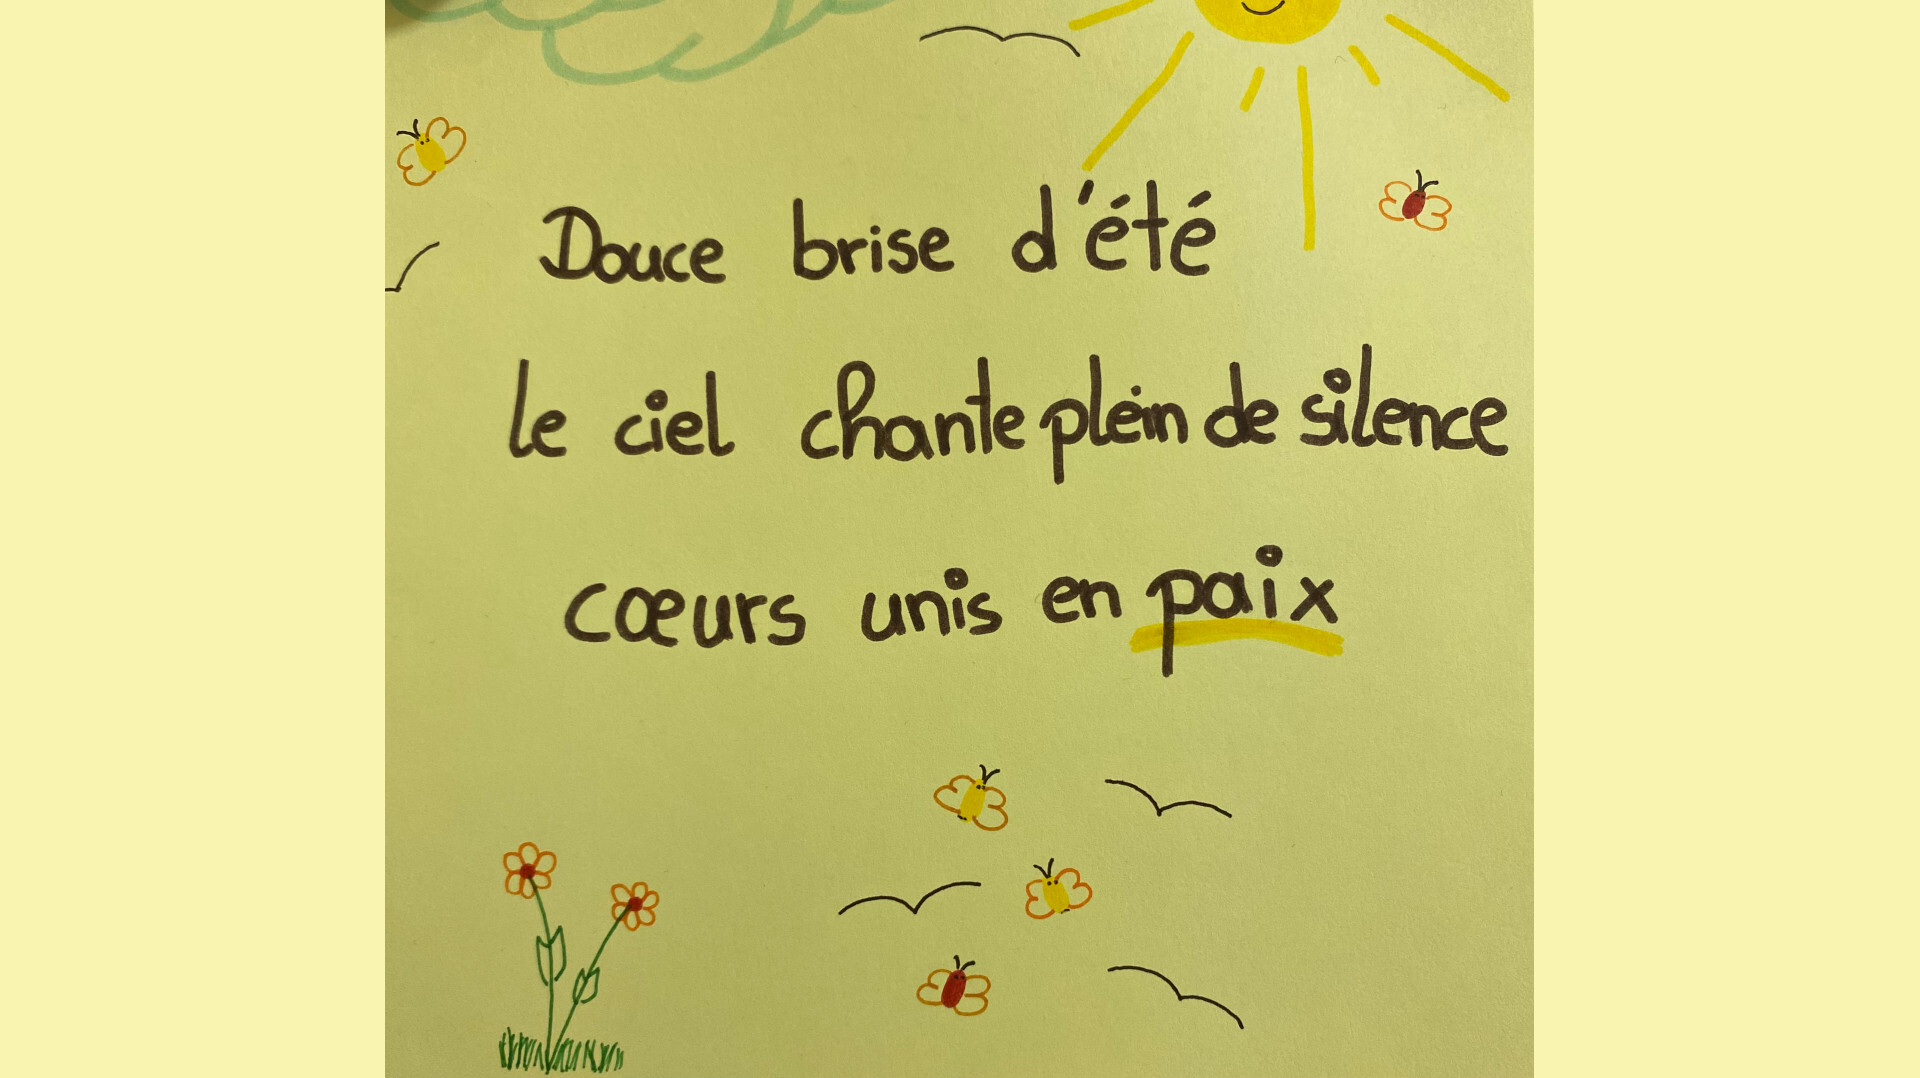 Douce brise d'été
le ciel chante plein de silence
cœurs unis en paix